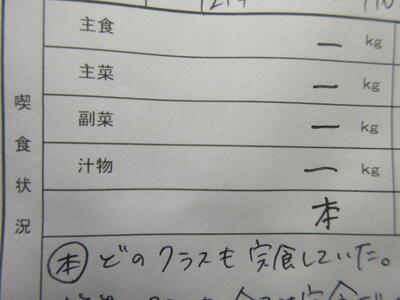 主食 ー kg
主菜 ー kg
副菜 ー kg
汁物 ー kg
本
喫食状況
本 どのクラスも完食していた。